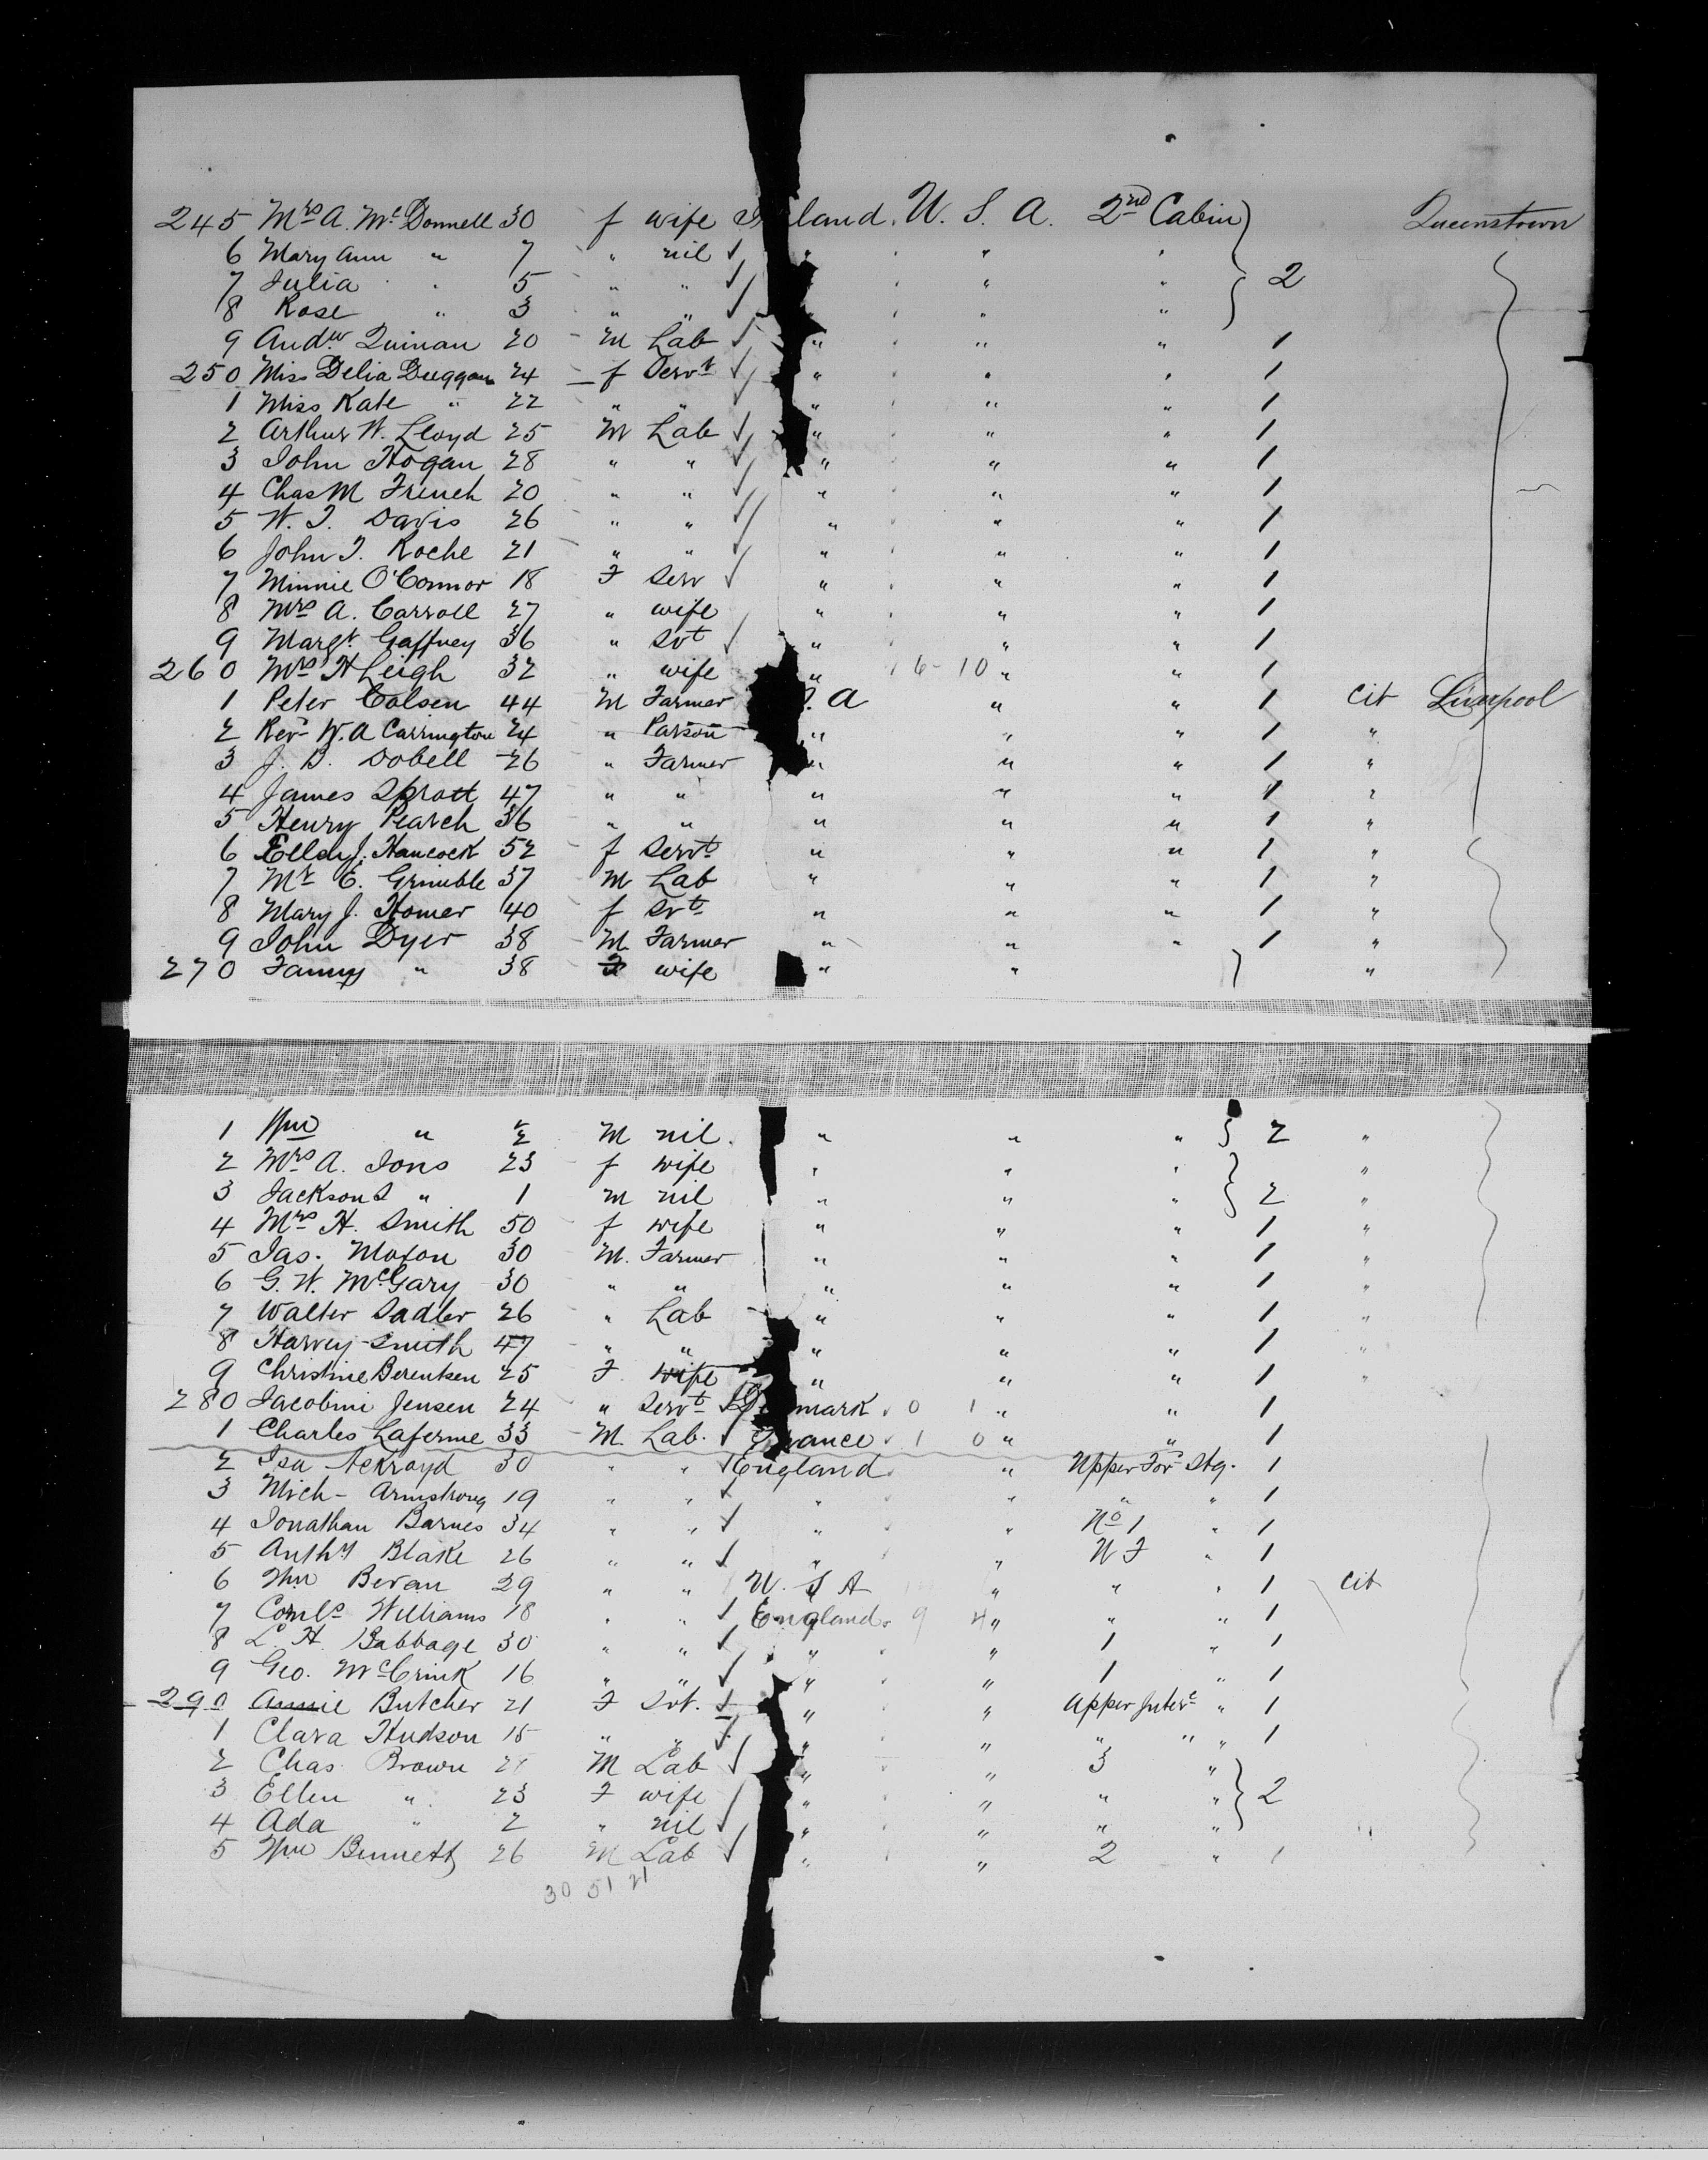 245 Mrs A. McDonnell 30 f wife I land. U. S. A. 2nd Cabin Queenstown
6 Mary Ann " 7 " nil " " " 2
7 Julia " 5 " " " " "
8 Rose " 3 " " " " "
9 Andw Quinan 20 M Lab " " " 1
250 Miss Delia Duggan 24 f Servt " " " 1
1 Miss Kate " 22 " " " " " 1
2 Arthur W. Lloyd 25 M Lab " " " 1
3 John Hogan 28 " " " " " 1
4 Chas M French 20 " " " " " 1
5 W. J. Davis 26 " " " " " 1
6 John J. Roche 21 " " " " " 1
7 Minnie O'Connor 18 F Serv " " " 1
8 Mrs A. Carroll 27 " wife " " " 1
9 Margt Gaffney 36 " Svt " " " 1
260 Mrs H Leigh 32 " wife " 6-10 " " 1
1 Peter Colsen 44 M Farmer S. A " " 1 cit Liverpool
2 Revd W. A Carrington 24 " Parson " " " 1 "
3 J. B. Dobell 26 " Farmer " " " 1 "
4 James Spratt 47 " " " " " 1 "
5 Henry Pearch 36 " " " " " 1 "
6 Ellen J. Hancock 52 f Servt " " " 1 "
7 Mr E. Grimble 37 M Lab " " " 1 "
8 Mary J. Homer 40 f Svt " " " 1 "
9 John Dyer 38 M Farmer " " " 1 "
270 Fanny " 38 F wife " " "
1 Wm " ½ M nil. " " " 2 "
2 Mrs A. Ions 23 f wife " " " "
3 Jackson S " 1 m nil " " " 2 "
4 Mrs H. Smith 50 f wife " " " 1 "
5 Jas. Moxon 30 M. Farmer " " " 1 "
6 G. W. McGary 30 " " " " " 1 "
7 Walter Sadler 26 " Lab " " " 1 "
8 Harvey Smith 47 " " " " " 1 "
9 Christine Berentsen 25 F wife " " " 1 "
280 Jacobini Jensen 24 " Servt D mark. 0 1 " " 1
1 Charles Laferme 33 M. Lab. F rance 1 0 " " 1
2 Isa Ackroyd 30 " " England " Upper For Stg. 1
3 Mich- Armstrong 19 " " " " " " 1
4 Jonathan Barnes 34 " " " " No 1 " 1
5 Anthy Blake 26 " " " " U F " 1
6 Wm Bevan 29 " " U. S A " " " 1 cit
7 Cornls Williams 18 " " England. 9 4 " " " 1
8 L. H. Babbage 30 " " " " 1 " 1
9 Geo. McCrink 16 " " " " 1 " 1
290 Annie Butcher 21 F Svt. " " Upper Inter " 1
1 Clara Hudson 15 " " " " " " " 1
2 Chas. Brown M Lab " " 3 "
3 Ellen " 23 F wife " " " " 2
4 Ada " 2 " nil " " " "
5 Wm Bennett 26 M Lab " " 2 " 1
30 51 21